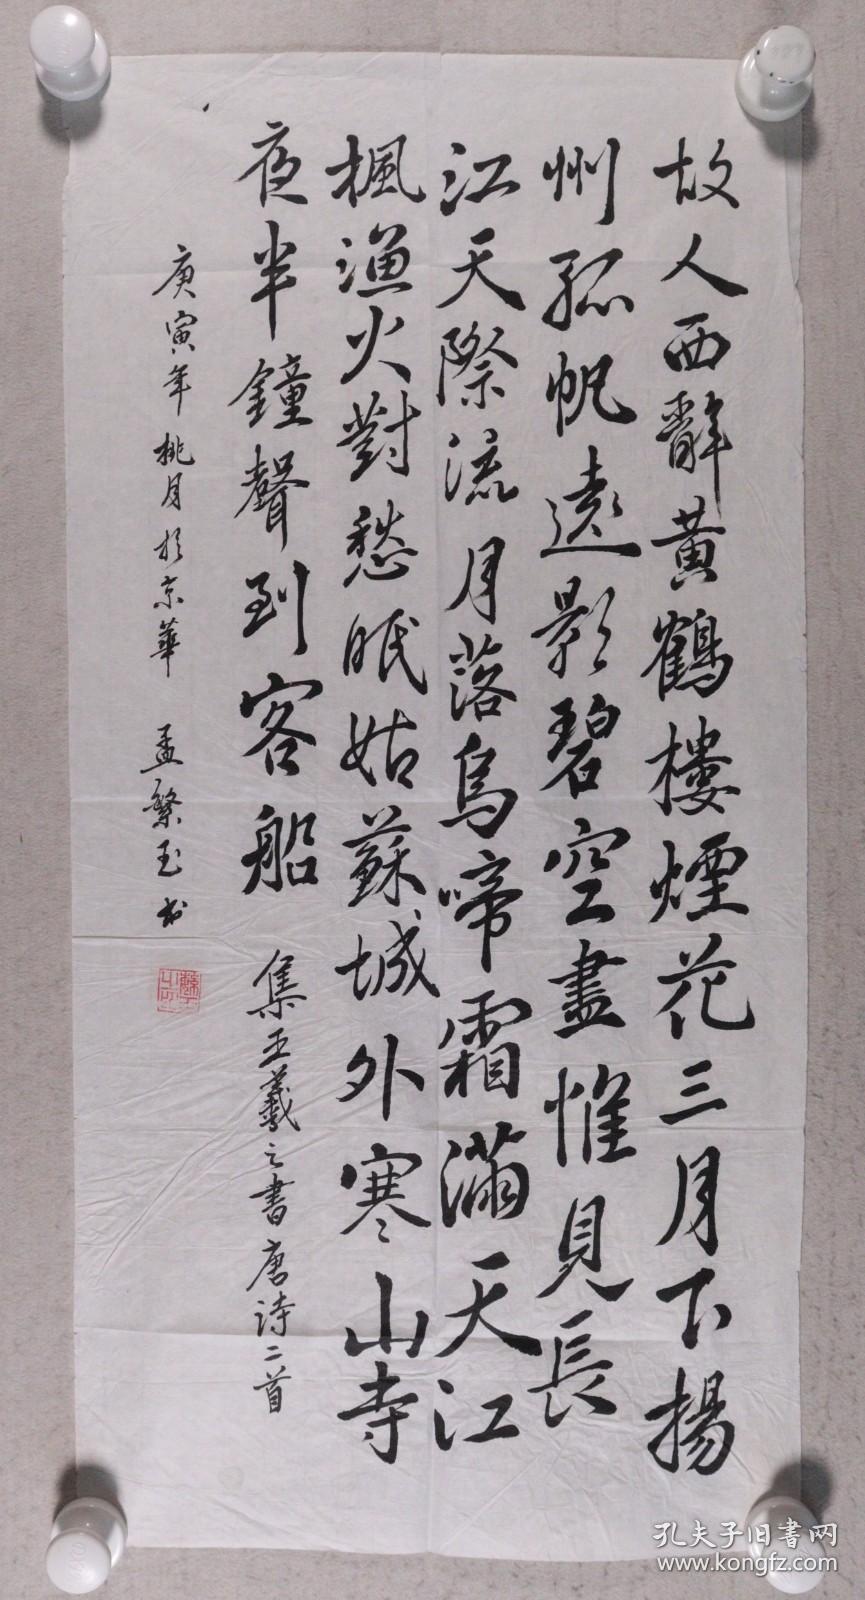 故人西辭黃鶴樓煙花三月下揚
州孤帆遠影碧空盡惟見長
江天際流月落烏啼霜滿天江
楓漁火對愁眠姑蘇城外寒山寺
夜半鐘聲到客船 集王羲之書唐詩二首
庚寅年桃月於京華 孟繁玉書
孔夫子旧書网
www.kongfz.com